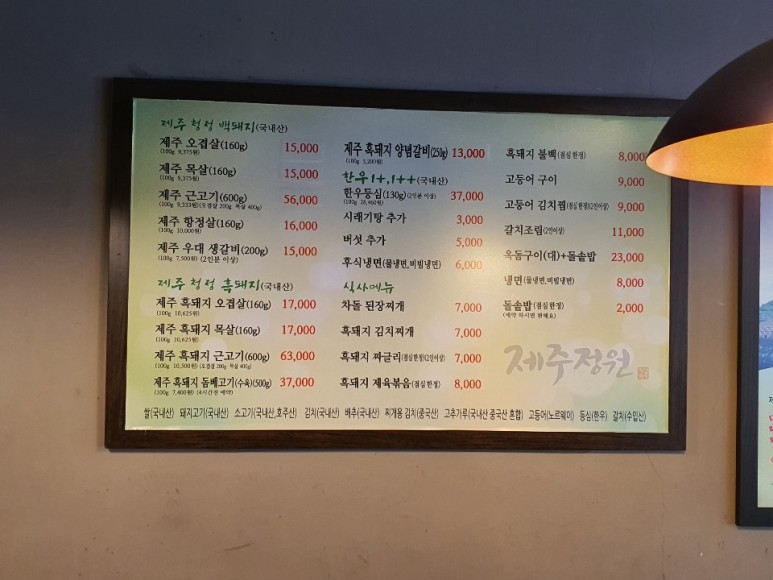 제주 청정 백돼지(국내산)
제주 오겹살(160g) 15,000
(100g 9,375원)
제주 목살(160g) 15,000
(100g 9,375원)
제주 근고기(600g) 56,000
(100g 9,333원)(오겹살 200g 목살 400g)
제주 항정살(160g) 16,000
(100g 10,000원)
제주 우대 생갈비(200g) 15,000
(100g 7,500원) (2인분 이상)
제주 청정 흑돼지(국내산)
제주 흑돼지 오겹살(160g) 17,000
(100g 10,625원)
제주 흑돼지 목살(160g) 17,000
(100g 10,625원)
제주 흑돼지 근고기(600g) 63,000
(100g 10,500원) (오겹살 200g 목살 400g)
제주 흑돼지 돔베고기(수육)(500g) 37,000
(100g 7,400원) (4시간전 예약)
제주 흑돼지 양념갈비(250g) 13,000
(100g 5,200원)
한우1+,1++(국내산)
한우등심(130g)(2인분 이상) 37,000
(100g 28,460원)
시래기탕 추가 3,000
버섯 추가 5,000
후식냉면(물냉면,비빔냉면) 6,000
식사메뉴
차돌 된장찌개 7,000
흑돼지 김치찌개 7,000
흑돼지 짜글리(점심한정)(2인이상) 7,000
흑돼지 제육볶음(점심한정) 8,000
흑돼지 불백(점심한정) 8,000
고등어 구이 9,000
고등어 김치찜(점심한정)(2인이상) 9,000
갈치조림(2인이상) 11,000
옥돔구이(대)+돌솥밥 23,000
냉면(물냉면,비빔냉면) 8,000
돌솥밥(점심한정) 2,000
(예약 하시면 편해요)
제주정원
쌀(국내산) 돼지고기(국내산) 소고기(국내산,호주산) 김치(국내산) 배추(국내산) 찌개용 김치(중국산) 고추가루(국내산 중국산 혼합) 고등어(노르웨이) 등심(한우) 갈치(수입산)